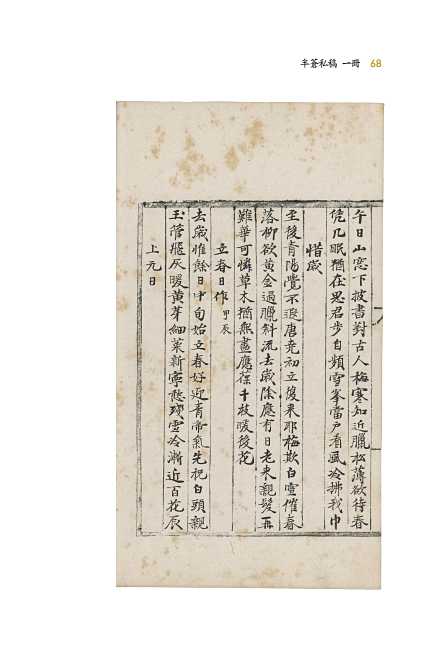 半蒼私稿 一冊 68
午日山窓下披書對古人梅寒知近臘松薄欲待春
凭几眠猶在思君步自頻雪峯當户看風冷拂我巾
惜歲
至後青陽覺不遐唐尭初立復来耶梅欺白雪催春
落柳欲黄金過臘斜流去歲除應有日老来親髮再
難華可憐草木猶無盡應葆千枝暖後花
立春日作甲辰
去歲惟餘日中旬始立春好近青帝氣先祝白頭親
玉管飛灰暖黄芽細菜新寧愁殘雪冷漸近百花辰
上元日